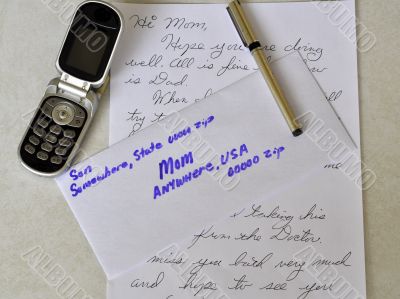 Hi Mom,
Hope you are doing
well. All is fine
is Dad.
When
try t
Son
Somewhere, State zip
Mom
ANYWHERE, USA
00000 zip
me
taking his
from the Doctor.
miss you very much
and hope to see you
ALBUMO